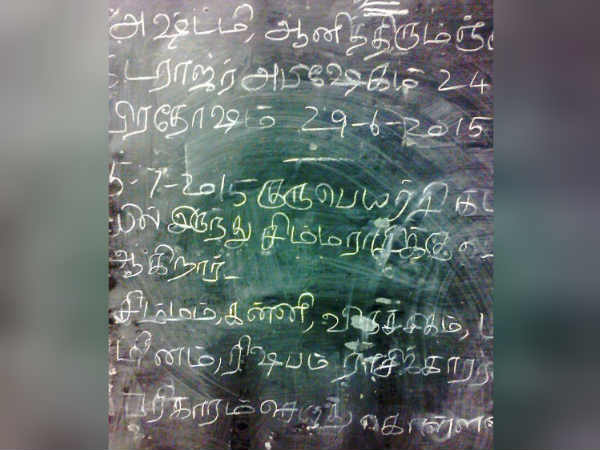 அஷ்டமி, ஆனித்திருமஞ்
டராஜர் அபிஷேகம் 24
பிரதோஷம் 29-6-2015
5-7-2015 குருபெயர்ச்சி
யில் இருந்து சிம்மராசிக்கு
ஆகிறார்-
சிம்மம், கன்னி, விருச்சிகம்,
மீனம், ரிஷபம் ராசிக்காரர
பரிகாரம் செய்து கொள்ள